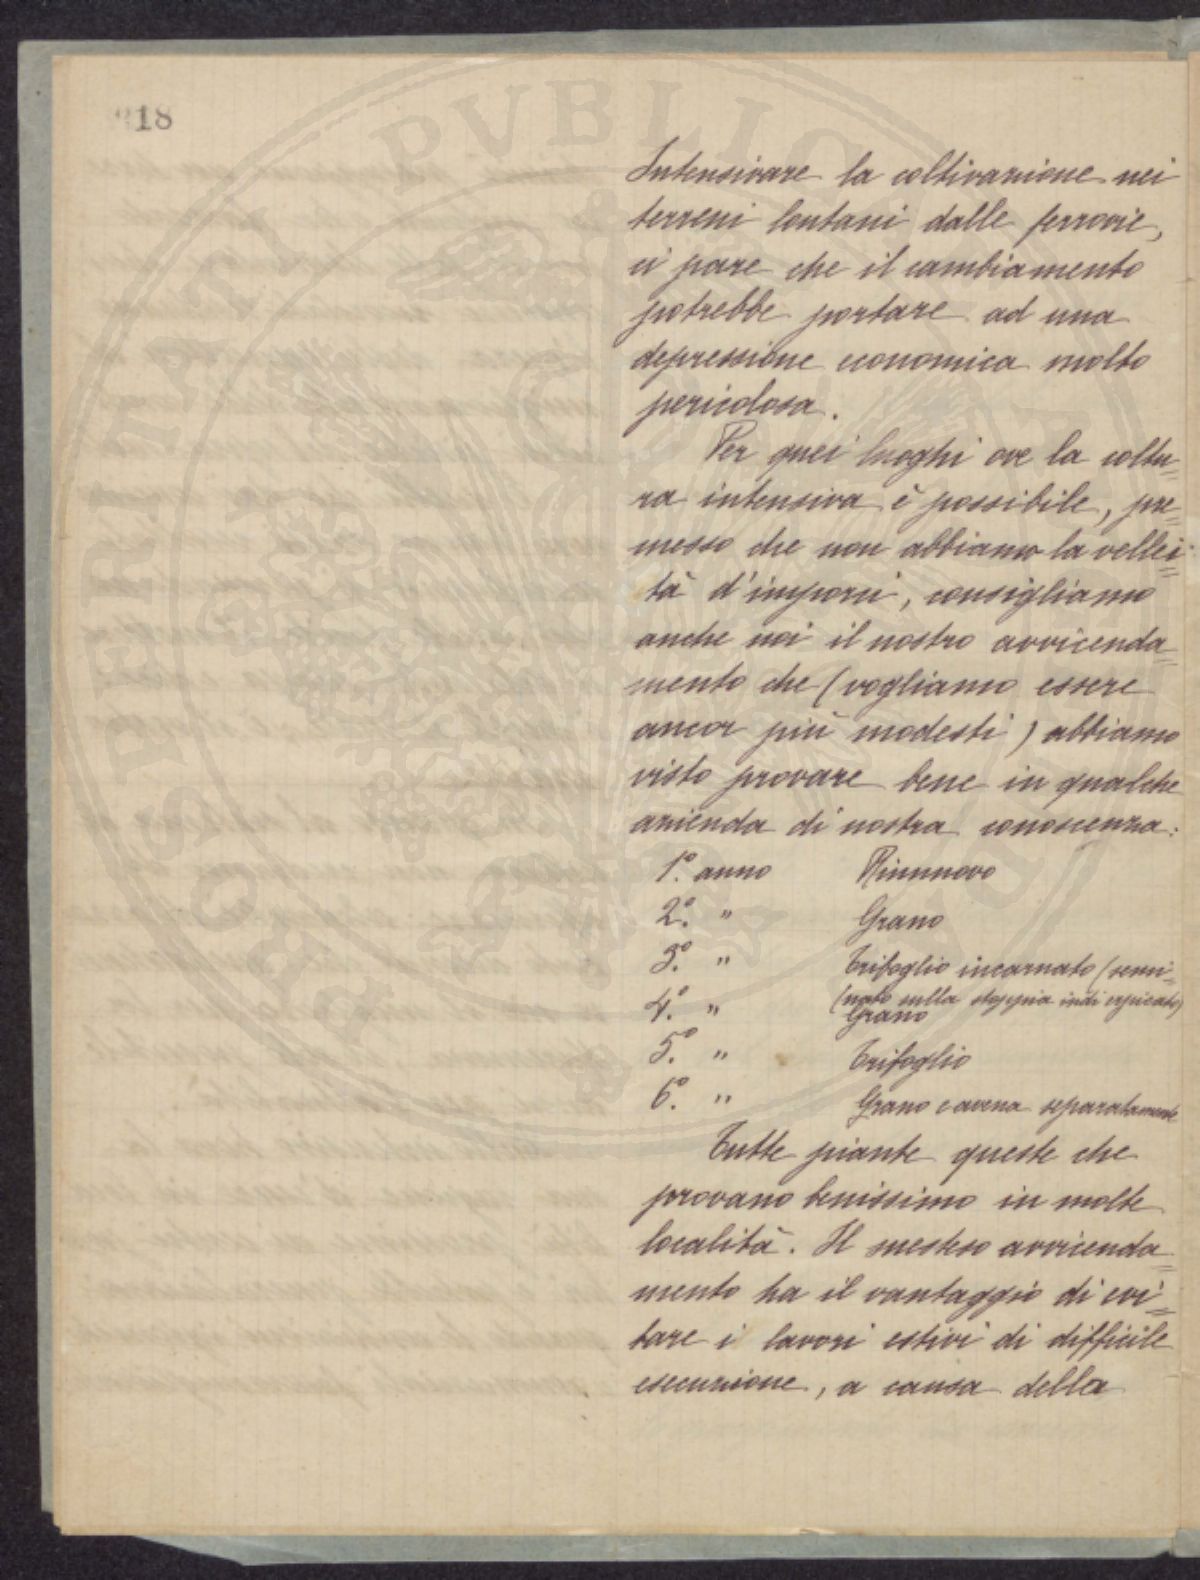 218
Intensivare la coltivazione nei
terreni lontani dalle ferrovie,
ci pare che il cambiamento
potrebbe portare ad una
depressione economica molto
pericolosa.
Per quei luoghi ove la coltu=
ra intensiva è possibile, pre=
messo che non abbiamo la vellei=
tà d'imporci, consigliamo
anche noi il nostro avvicenda=
mento che (vogliamo essere
ancor più modesti) abbiamo
visto provare bene in qualche
azienda di nostra conoscenza:
1.º anno Rinnnovo
2.º " Grano
3.º " Trifoglio incarnato (semi=
(nato sulla stoppia indi erpicato)
4.º " Grano
5.º " Trifoglio
6.º " Grano e avena separatamente
Tutte piante queste che
provano benissimo in molte
località. Il medesimo avvicenda=
mento ha il vantaggio di evi=
tare i lavori estivi di difficile
esecuzione, a causa della